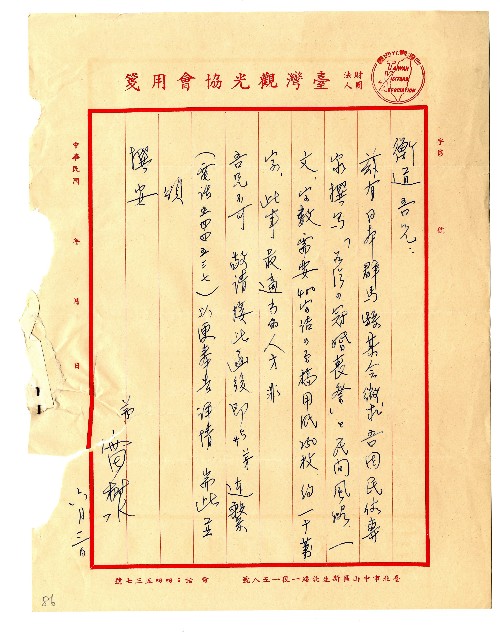 財團法人 臺灣觀光協會用箋
TAIWAN VISITORS ASSOCIATION
字第 號
衡道吾兄：
茲有日本群馬縣某會徵求吾國民俗專
家撰寫「台湾の冠婚喪祭」と民間風習一
文，字數需要 日 の 稿用紙 枚約一千
字，此事最適當的人方非
吾兄不可 敬請接此函後即與弟連繫
（電話五四四五三三七）以便奉告詳情 耑此並
頌
撰安
弟 樹
六月三日
中華民國 年 月 日
臺北市中山區新生北路一段一五八號 會 話：四四五三七號
86